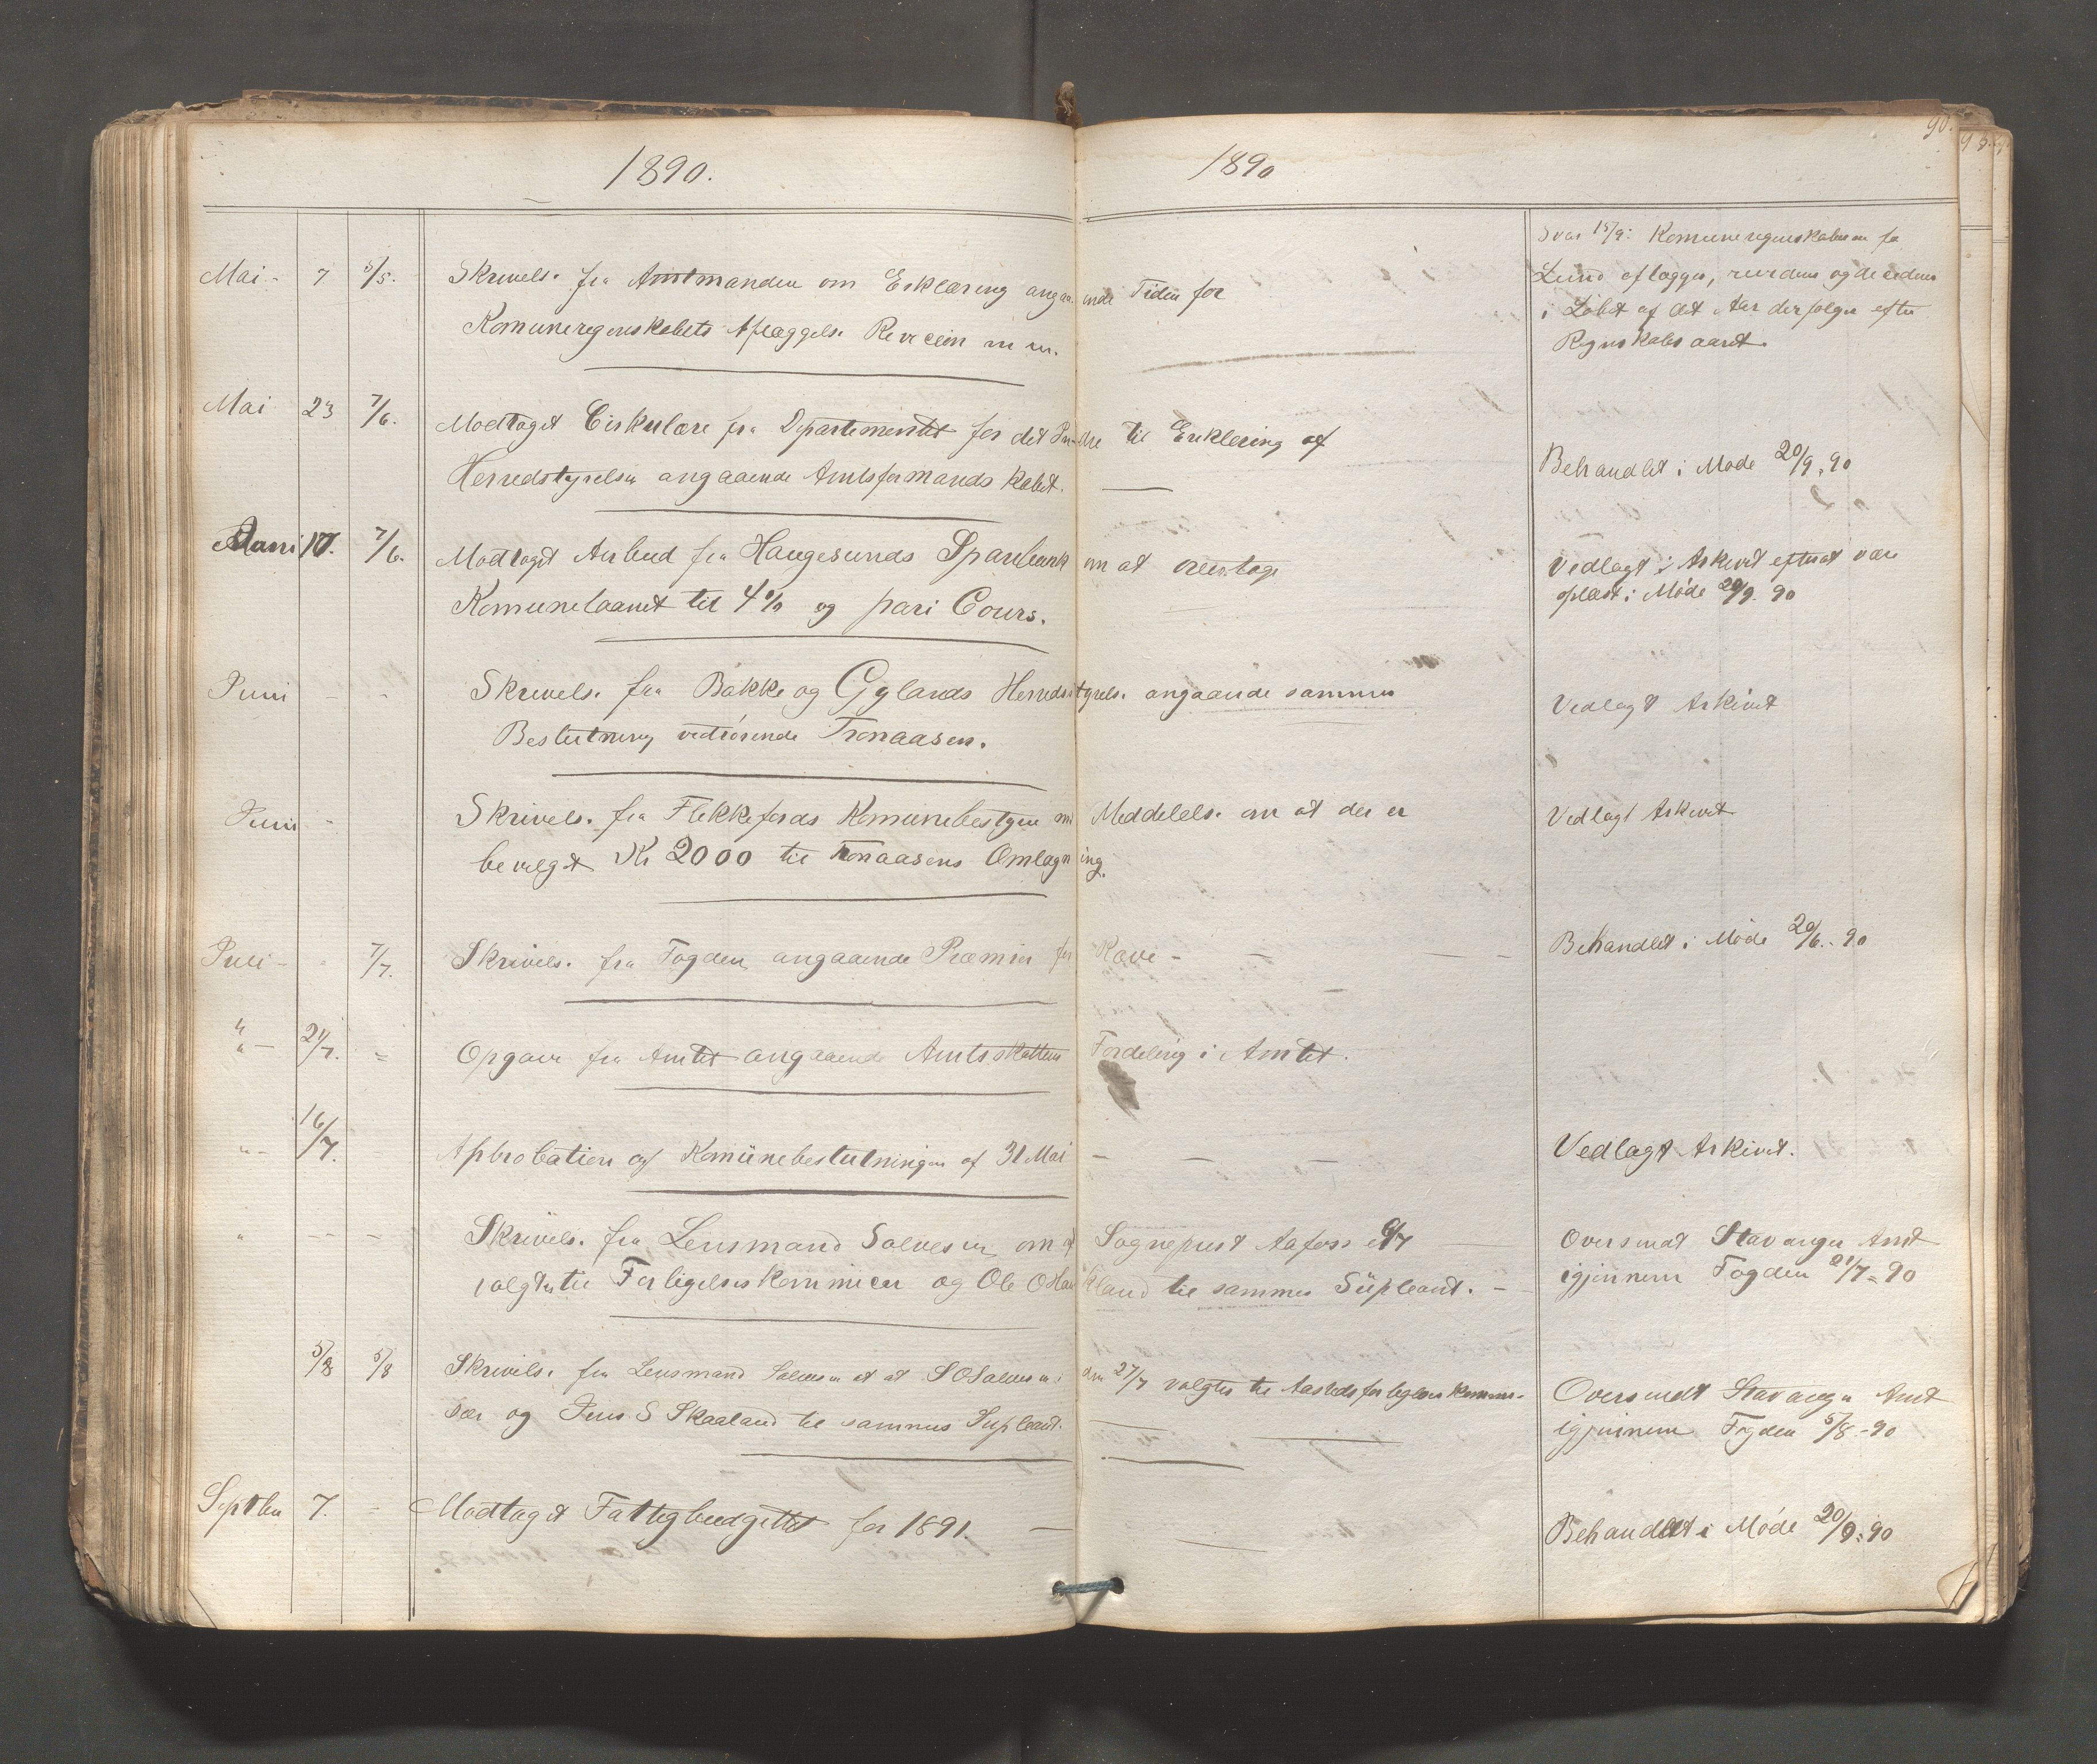 1890.
1890
90.
Mai - 7 5/5. Skrivels. fra Amtmanden om Erklæring angaaende Tiden for
Komuneregnskabets Aflæggels. Revision m m.
Svar 15/9: Komuneregnskaberne fo
Lund aflægges, revideres og decideres
i Løbet af det Aar der følger efter
Regnskabsaaret.
Mai 23 7/6. Modtaget Cirkulære fra Departementet for det Indre til Erklering af
Herredstyrelsen angaaende Amtsformandskabet. —
Behandlet i Møde 20/9. 90
17. 7/6. Modtaget Anbud fra Haugesunds Sparebank om at overtage
Komunelaanet til 4% og pari Cours.
Vedlagt i Arkivet efterat være
oplæst i Møde 20/9. 90
Juni - - Skrivels. fra Bakke og Gylands Herredstyrels. angaaende sammes
Beslutning vedrørende Tronaasen.
Vedlagt Arkivet
Juni - Skrivels. fra Flekkefjords Komunebestyre med Meddelels. om at der er
bevilget Kr 2000 til Tronaasens Omlægning.
Vedlagt Arkivet
Juli - - 7/7. Skrivels. fra Fogden angaaende Præmier for Ræve -
Behandlet i Møde 20/6. 90
" - 21/7. = Opgave fra Amtet angaaende Amtsskattens Fordeling i Amtet.
" - 16/7. Aprobation af Komünebeslutningen af 31 Mai - - -
Vedlagt Arkivet.
" -- - Skrivels. fra Lensmand Salvesen om at Sogneprest Aafoss er 6/7
valgt til Forligelseskommisær og Ole Oskar til sammes Süpleant. -
Oversendt Stavanger Amt
igjennem Fogden 21/7. 90
5/8 5/8 Skrivels. fra Lensmand Salvesen at at S O Salvesen den 27/7 valgtes til Aastedsforligelseskommis-
sær og Jens S Skaaland til sammes Supleant.
Oversendt Stavanger Amt
igjennem Fogden 5/8.-90
Septbr 7. = Modtaget Fattigbudgettet for 1891. —
Behandlet i Møde 20/9. 90